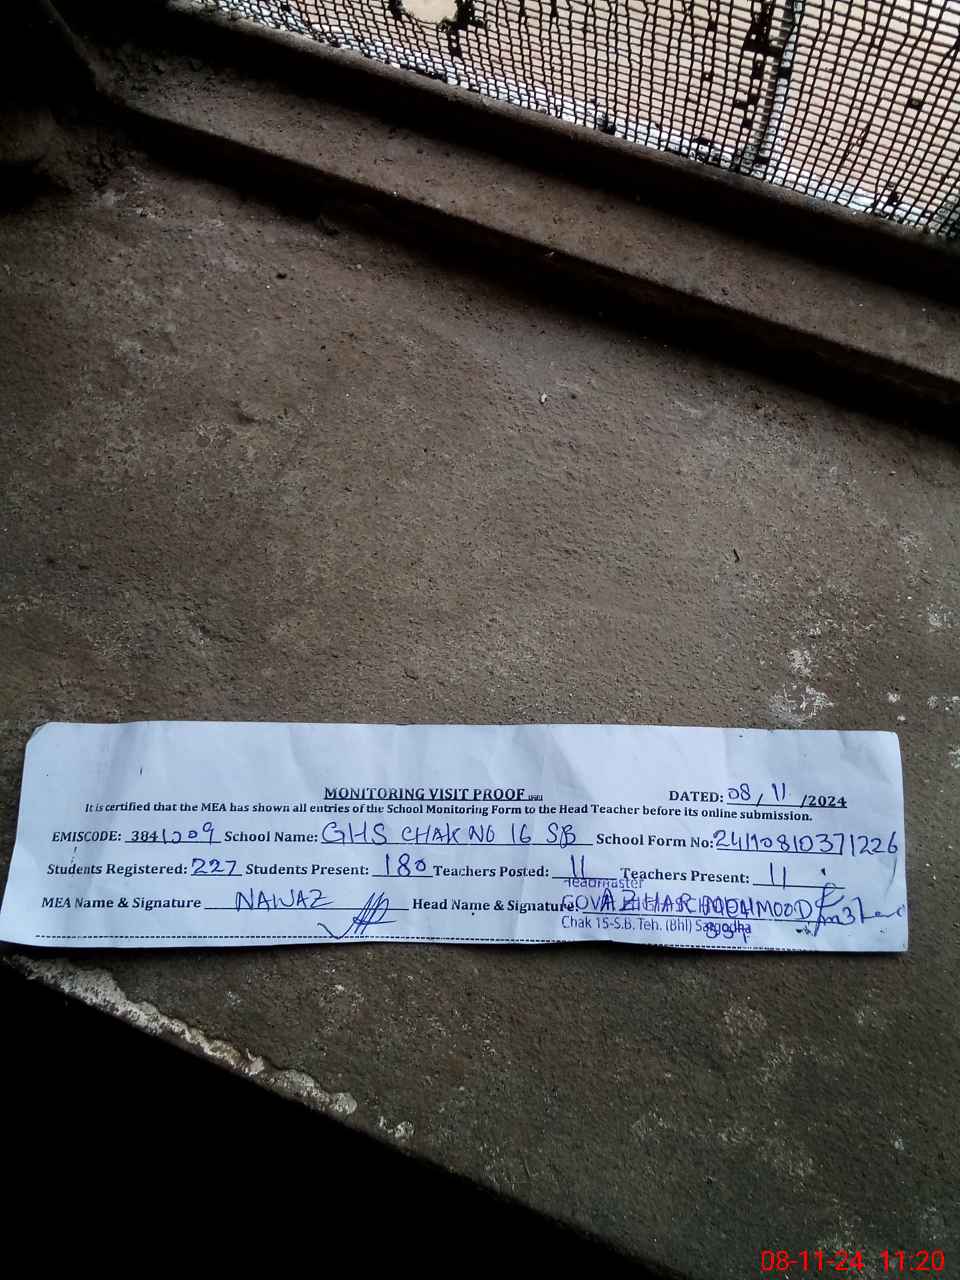 MONITORING VISIT PROOF DATED: 08/11/2024
It is certified that the MEA has shown all entries of the School Monitoring Form to the Head Teacher before its online submission.
EMISCODE: 3841209 School Name: GHS CHAK NO 16 SB School Form No: 24110810371226
Students Registered: 227 Students Present: 180 Teachers Posted: 11 Teachers Present: 11
Headmaster
MEA Name & Signature NAWAZ Head Name & Signature: AZHAR MEHMOOD
Chak 15-S.B. Teh. (Bhl) Sargodha
08-11-24 11:20